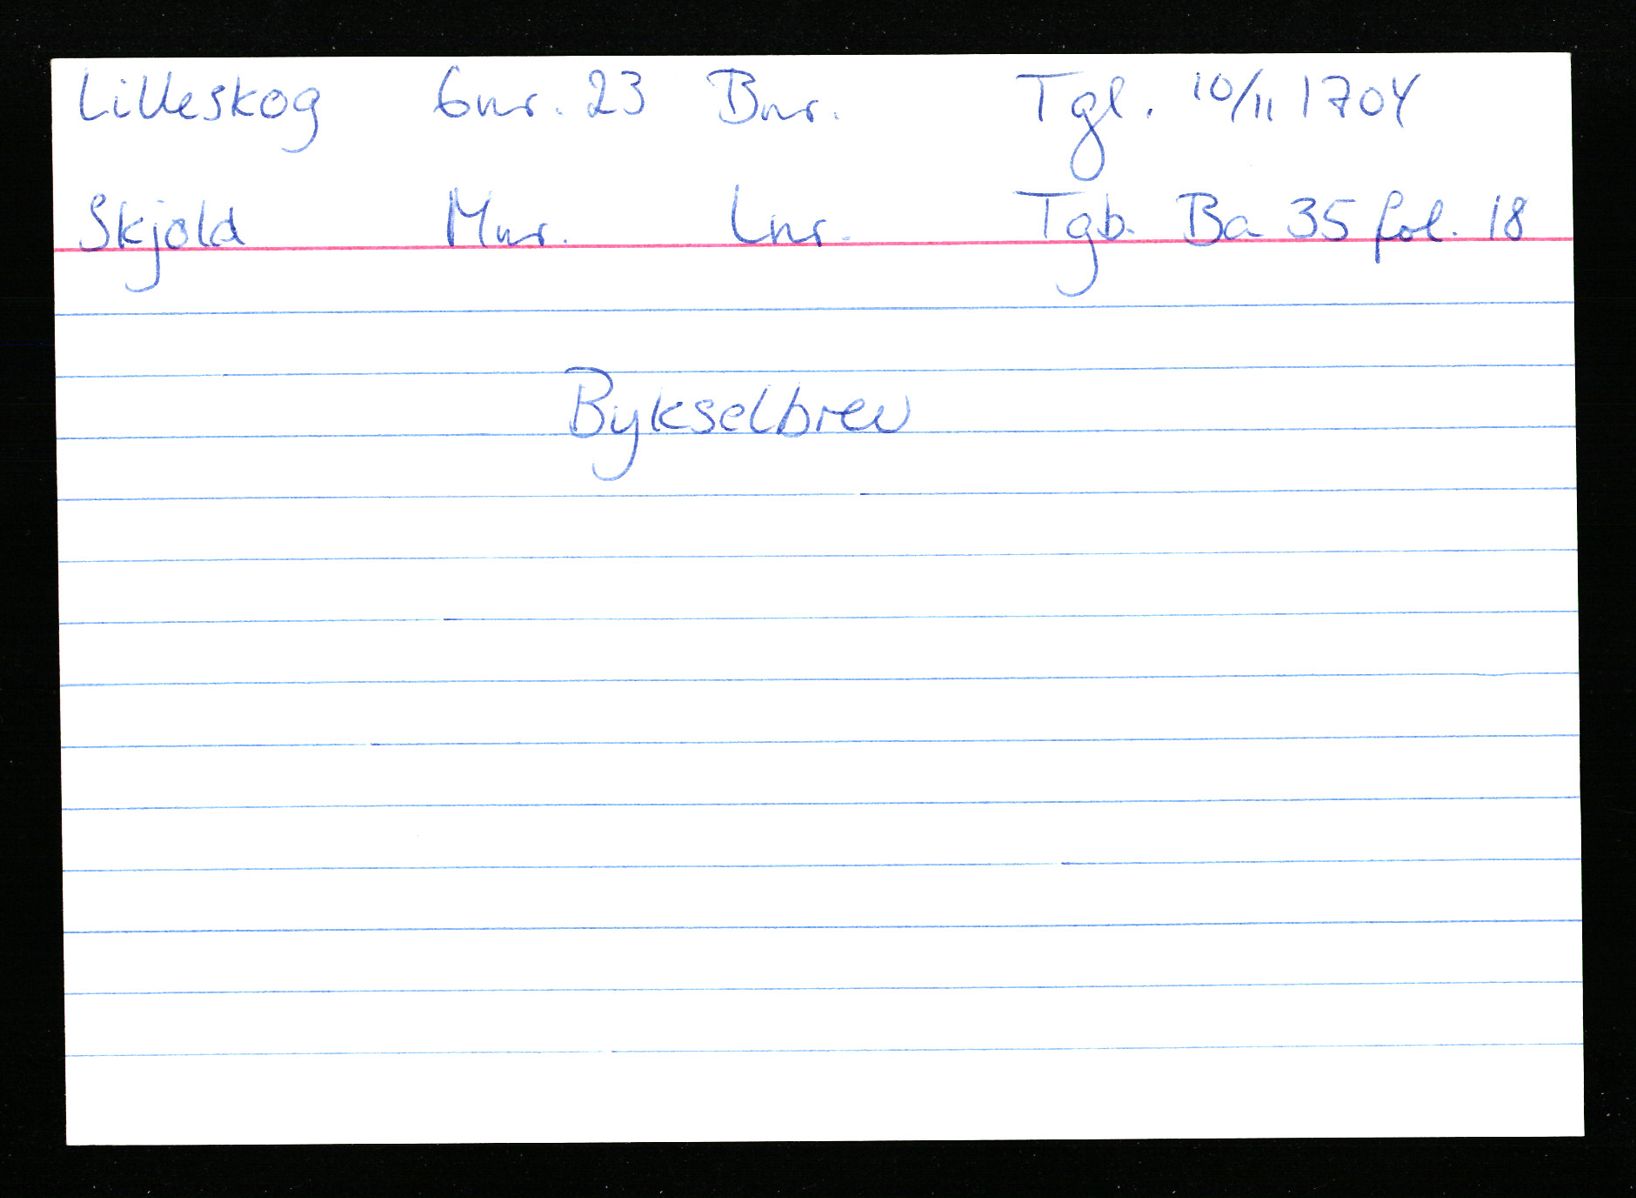 Lilleskog Gnr. 23 Bnr. Tgl. 10/11 1704
Skjold Mnr. Lnr. Tgb. Ba 35 fol. 18
Bykselbrev